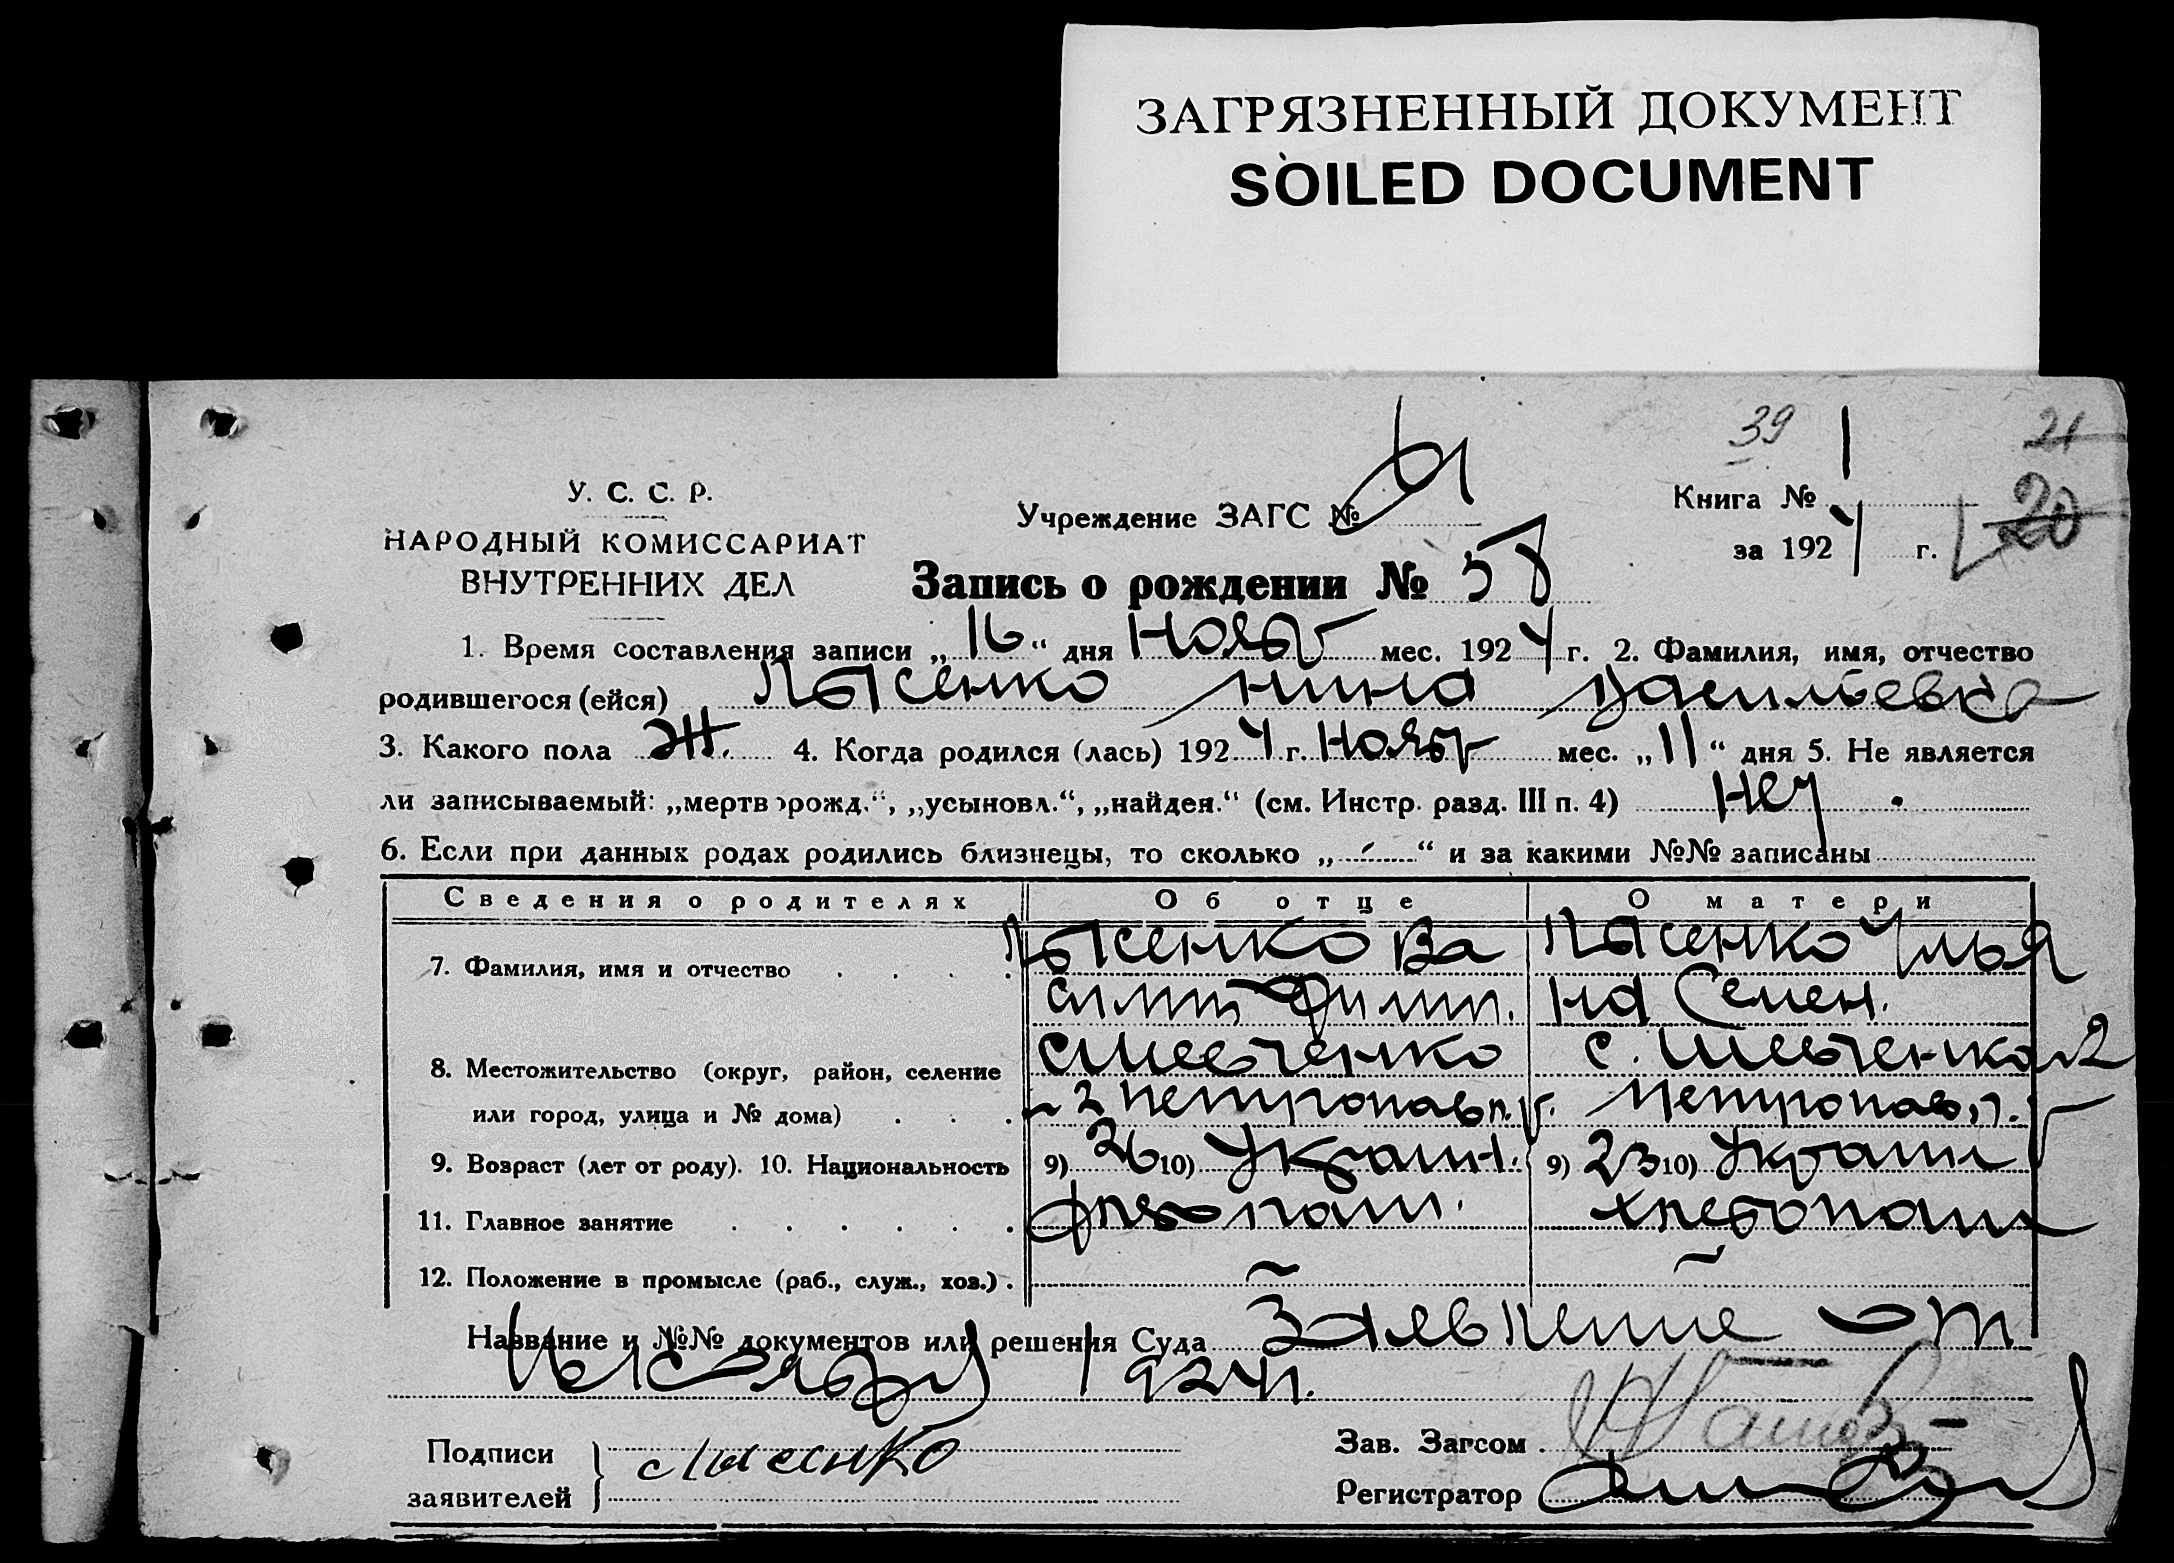 ЗАГРЯЗНЕННЫЙ ДОКУМЕНТ
SOILED DOCUMENT
39
21
20
У. С. С. Р.
НАРОДНЫЙ КОМИССАРИАТ
ВНУТРЕННИХ ДЕЛ
Учреждение ЗАГС №
Книга № 1
за 1924 г.
Запись о рождении № 58
1. Время составления записи „16“ дня Нояб мес. 1924 г. 2. Фамилия, имя, отчество
родившегося (ейся) Лысенко Нина Васильевна
3. Какого пола Ж. 4. Когда родился (лась) 1924 г. Нояб мес. „11“ дня 5. Не является
ли записываемый: „мертворожд.“, „усыновл.“, „найден.“ (см. Инстр. разд. III п. 4) Нет
6. Если при данных родах родились близнецы, то сколько „-“ и за какими №№ записаны
Сведения о родителях Об отце О матери
7. Фамилия, имя и отчество Лысенко Ва Лысенко Улья
силий Филип. на Семен.
8. Местожительство (округ, район, селение с Шевченко с. Шевченко
или город, улица и № дома) Петропавл. р. Петропавл. р.
9. Возраст (лет от роду). 10. Национальность 9) 26 10) Украин. 9) 23 10) Украин
11. Главное занятие хлебопаш. хлебопаш
12. Положение в промысле (раб., служ., хоз.) - -
Название и №№ документов или решения Суда Заявление от
16 Ноября 1924 г.
Подписи
заявителей
Лысенко
Зав. Загсом
Регистратор